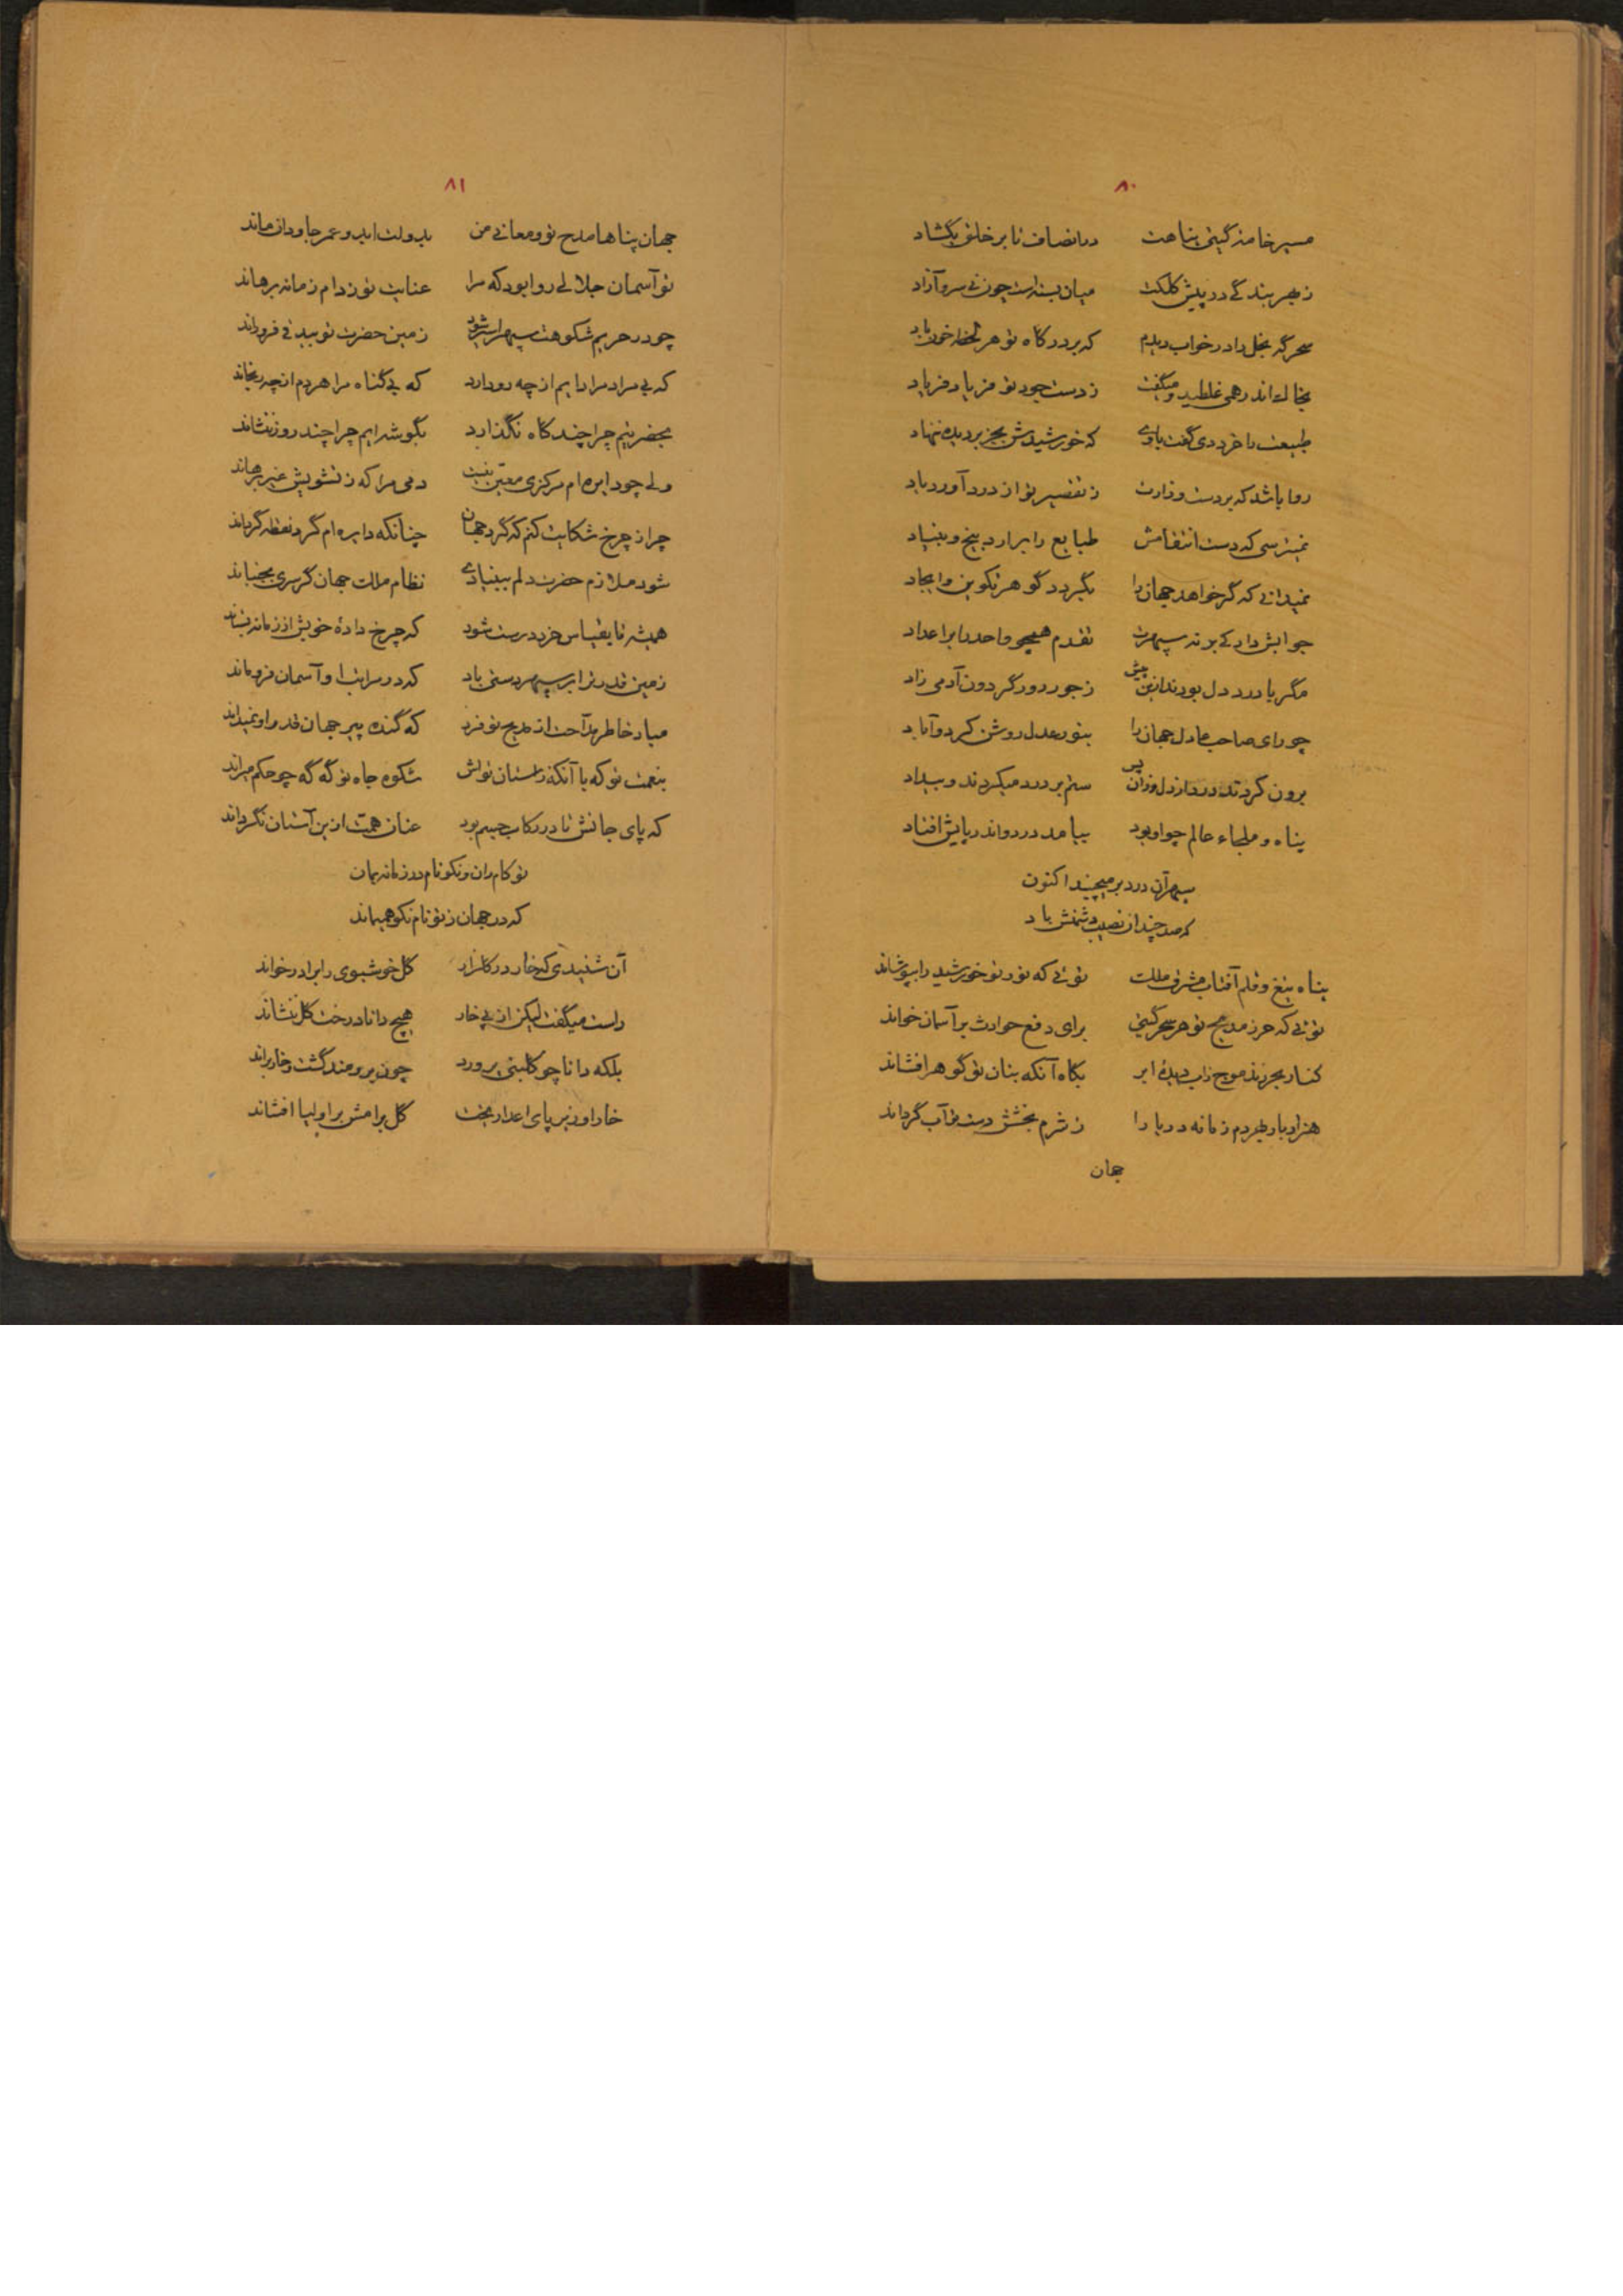 ۸۰
مسیر خامهٔ گیتی پناهت در انصاف تا بر خلق بگشاد
ز بهر بندگی در پیش کلکت میان بسته است چون نی سرو آزاد
سحرگه بخل را در خواب دیدم که بر درگاه تو هر لحظه خون باد
بخاک اندر همی غلطید و میگفت ز دست جود تو فریاد فریاد
طبیعت را خرد دی گفت که خورشیدش بجز بر دیده ننهاد
روا باشد که بر دست وزارت ز تقصیر تو از درد آورد یاد
نمیترسی که دست انتقامش طبایع را برارد بیخ و بنیاد
نمیدانی که گر خواهد جهان را نگیرد گوهر تکوین و ایجاد
جوابش داد کی بر نه سپهرت تقدم همچو واحد را بر اعداد
مگر با درد دل بودند ازین پیش ز جور دور گردون آدمی زاد
چو رای صاحب عادل جهان را بنور عدل روشن کرد و آباد
برون کردند درد از دل وزان پس ستم بر درد میکردند و بیداد
پناه و ملجاء عالم چو او بود بیامد درد و اندر پایش افتاد
سپهر آن درد بر میچیند اکنون
که صد چندان نصیب دشمنش باد
پناه تیغ و قلم آفتاب مشرق ملک توئی که نور تو خورشید را بپوشاند
توئی که حرز مدیح تو هر سحر گیتی برای دفع حوادث بر آسمان خواند
کنار بحر زند موج زاب دیدهٔ ابر بگاه آنکه بنان تو گوهر افشاند
هزار بار بهر دم زمانه دریا را ز شرم بخشش دست تو آب گرداند
جهان
۸۱
جهان پناها مدح تو و معانی من بدولت ابد و عمر جاودان ماند
تو آسمان جلالی روا بود که مرا عنایت تو ز دام زمانه برهاند
چو در حریم شکوهت سپهر زمین حضرت تو بیدقی فرو راند
که بی مراد مرا دایم از چه رو دارد که بی گناه مرا هر دم از چه رنجاند
بحضرتیم چرا چند گاه نگذارد بگوشه‌ایم چرا چند روز ننشاند
ولی چو دایره‌ام مرکزی معین نیست دمی مرا که ز تشویش غیر برهاند
چرا ز چرخ شکایت کنم که گرد جهان چنانکه دایره‌ام گرد نقطه گرداند
شود ملازم حضرت دلم ببنیادی نظام ملک جهان گر سری بجنباند
همیشه تا بقیاس خرد درست شود که چرخ دادهٔ خویش از زمانه بستاند
زمین قدر ترا بر سپهر دستی باد که در سرایت او آسمان فرو ماند
مباد خاطر مداحت از مدیح تو فرد که گنده پیر جهان قدر او نمیداند
بنعمت تو که با آنکه ز استان تواش شکوه جاه تو گه گه چو حکم میراند
که پای جانش تا در رکاب جسم بود عنان همت ازین آستان نگرداند
تو کام ران و نکو نام در زمانه بمان
که در جهان ز تو نام نکو همیماند
آن شنیدی که خار در گلزار گل خوشبوی را برادر خواند
راست میگفت لیکن از پی خار هیچ دانا درخت گل ننشاند
بلکه دانا چو گلبنی پرورد چون برومند گشت و خار براند
خار او زیر پای اعدا ریخت گل برامش بر اولیا افشاند